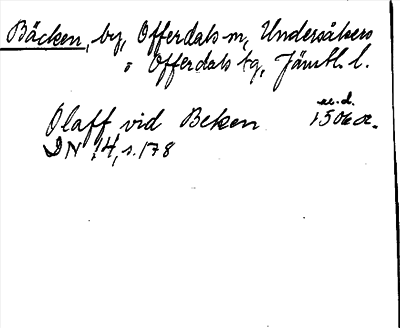 Bäcken, by, Offerdals sn, Undersåkers
o Offerdals tg, Jämtl. l.
Olaff vid Beken
DN 14, s. 178